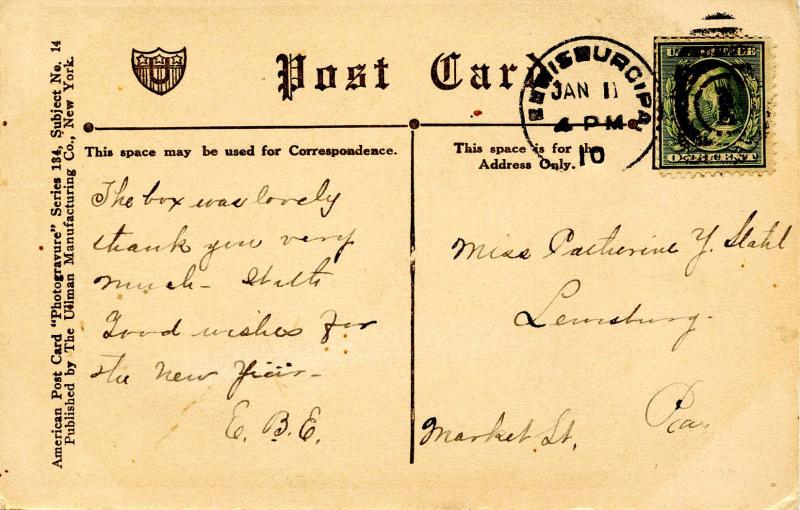 American Post Card "Photogravure" Series 134, Subject No. 14
Published by The Ullman Manufacturing Co., New York.
U
Post Card
LEWISBURG, PA.
JAN 11
4 PM
10
ONE CENT
This space may be used for Correspondence.
This space is for the
Address Only.
The box was lovely
thank you very
much - With
Good wishes for
the New Year -
E. B. E.
Miss Catherine Y. Stahl
Lewisburg.
Market St. Pa.